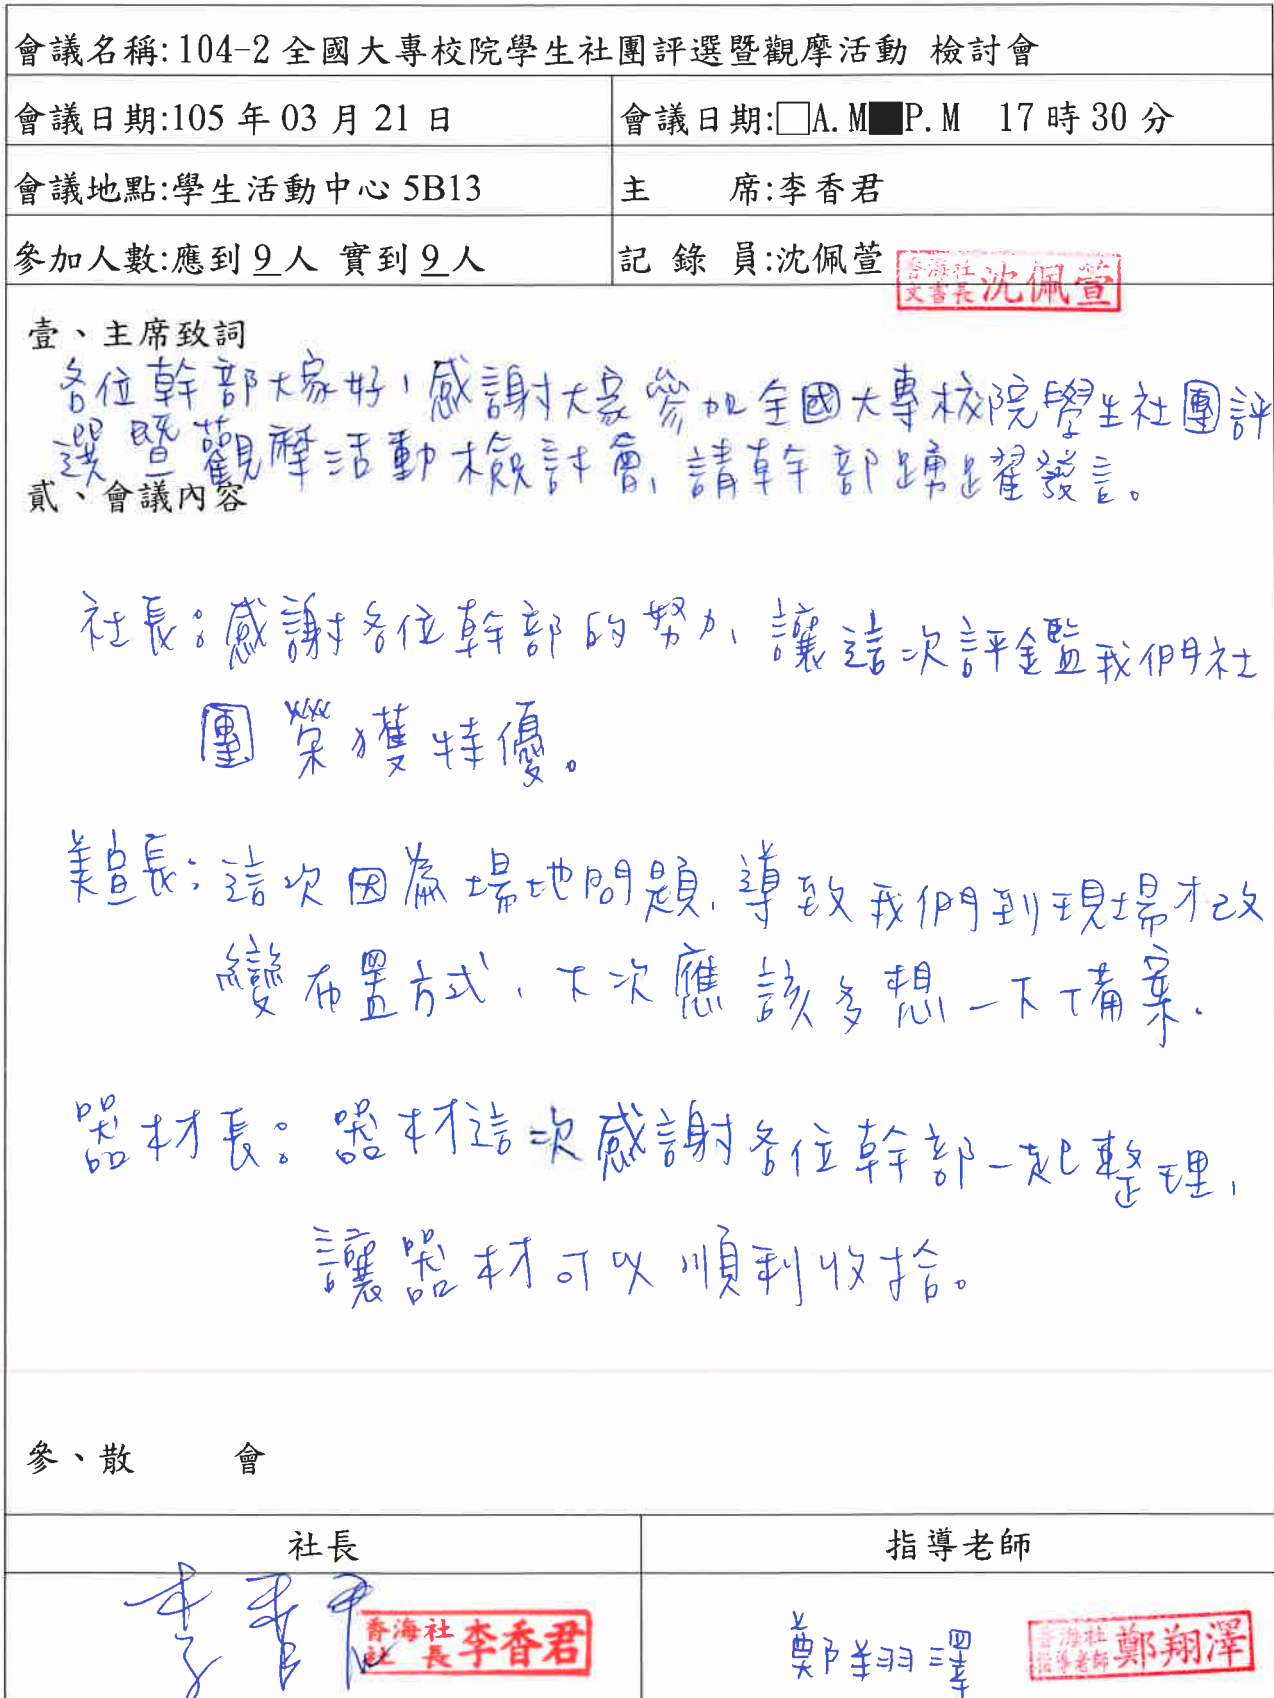 會議名稱:104-2 全國大專校院學生社團評選暨觀摩活動 檢討會
會議日期:105 年 03 月 21 日 會議日期:□A.M■P.M 17 時 30 分
會議地點:學生活動中心 5B13 主 席:李香君
參加人數:應到 9 人 實到 9 人 記 錄 員:沈佩萱
香海社
文書長 沈佩萱
壹、主席致詞
各位幹部大家好,感謝大家參加全國大專校院學生社團評
選暨觀摩活動檢討會,請幹部踴躍發言。
貳、會議內容
社長:感謝各位幹部的努力,讓這次評鑑我們社
團榮獲特優。
美宣長:這次因為場地問題,導致我們到現場才改
變布置方式,下次應該多想一下備案.
器材長:器材這次感謝各位幹部一起整理,
讓器材可以順利收拾。
參、散 會
社長 指導老師
李香君 鄭翔澤
香海社
社長 李香君
香海社
指導老師 鄭翔澤